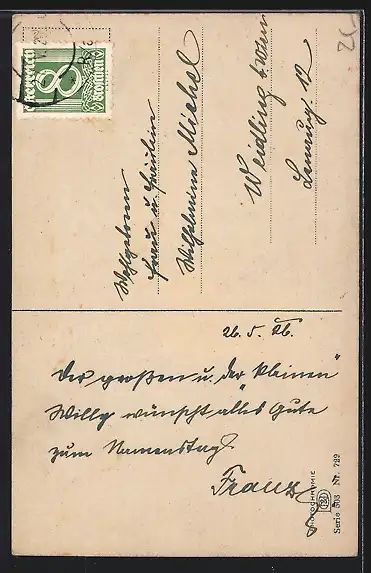 8
Wohlgeboren
Frau u. Fräulein
Wilhelmine Michal
Weidling b. Wien
12
26. 5. 26.
Der großen u. der "kleinen"
Willy wünscht alles Gute
zum Namenstag
Franz
PHOTOCHROMIE
Serie 503 Nr. 729